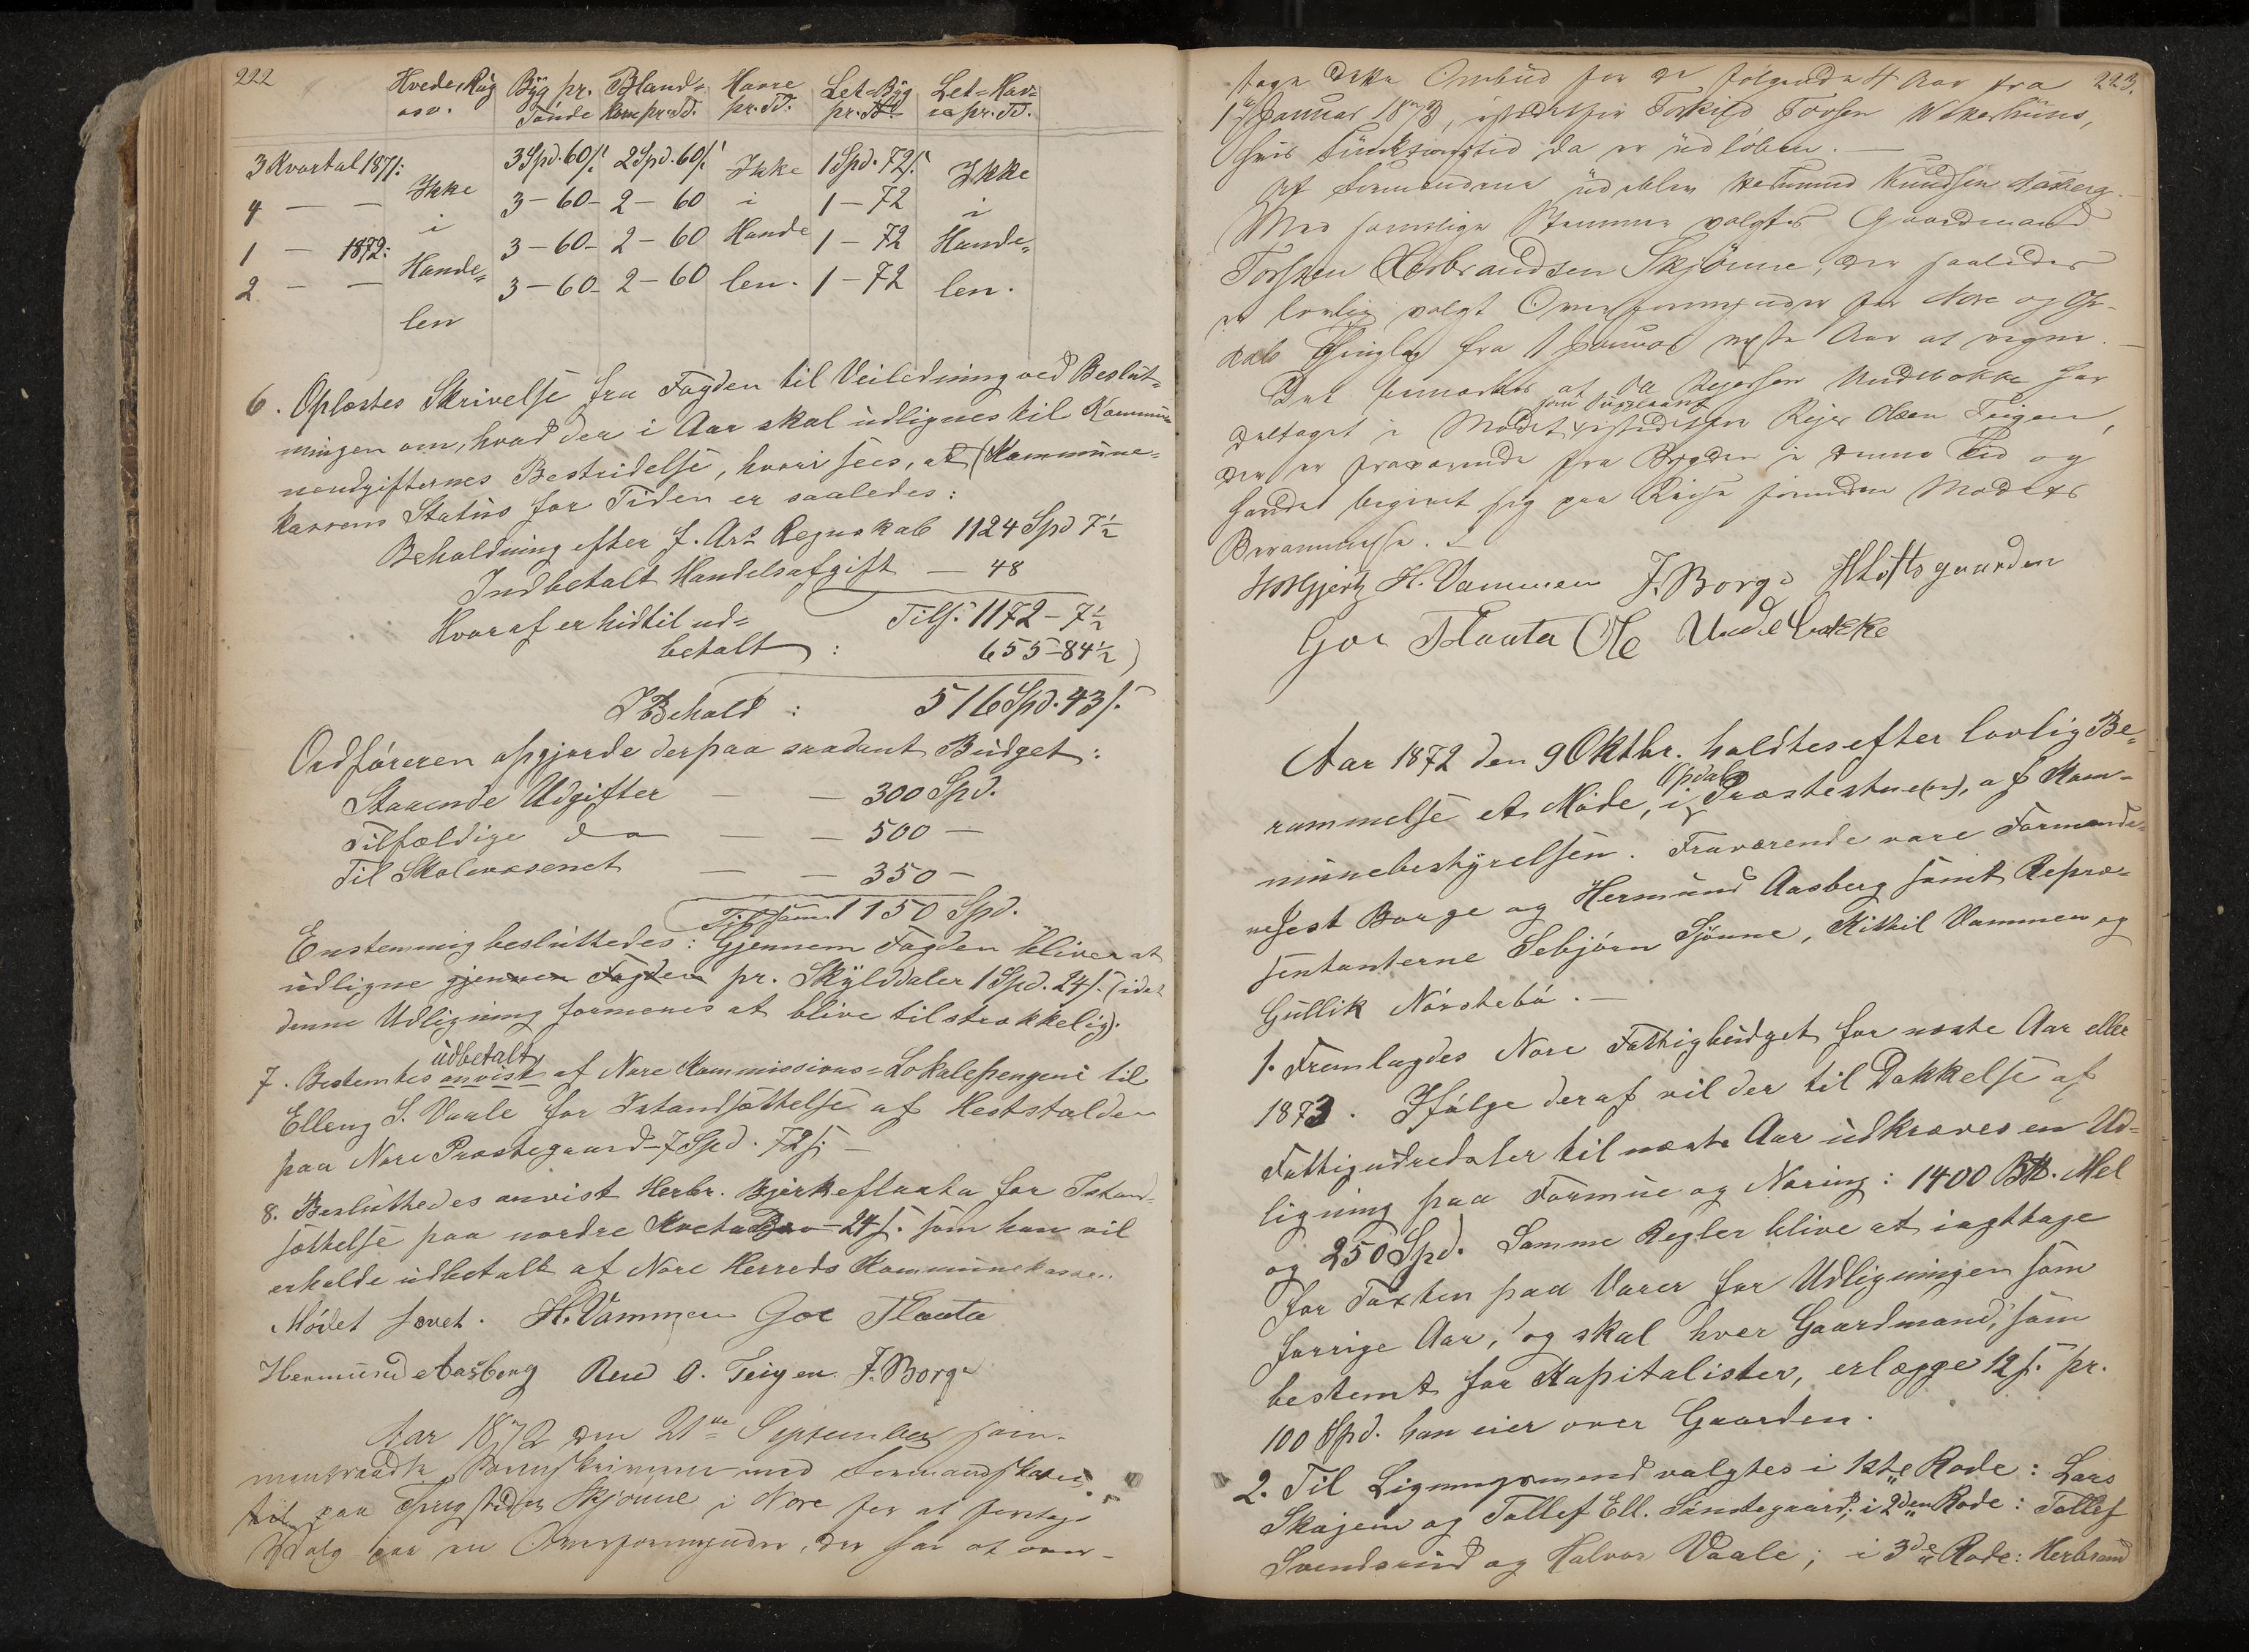 222
Hvede, Rug Byg pr. Bland- Havre Let-Byg Let-Hav-
osv. Tönde korn pr. Td. pr. Td. pr. Td. re pr. Td.
3 Kvartal 1871: Ikke 3 Spd. 60 s. 2 Spd. 60 s. Ikke 1 Spd. 72 s. Ikke
4 — — i 3 - 60 - 2 - 60 i 1 - 72 i
1 — 1872: Hande- 3 - 60 - 2 - 60 Hande 1 - 72 Hande-
2 — — len 3 - 60 - 2 - 60 len. 1 - 72 len.
6. Oplæstes Skrivelse fra Fogden til Veiledning ved Beslut-
ningen om, hvad der i Aar skal udlignes til Kommu-
neudgifternes Bestridelse, hvori sees, at (Kommune-
kassens Status for Tiden er saaledes:
Beholdning efter f. Ars Regnskab 1124 Spd 7½
Indbetalt Handelsafgift — 48
Tils. 1172 - 7½
Hvoraf er hidtil ud-
betalt : 655 - 84½)
I Behold : 516 Spd. 43 s.
Ordföreren opgjorde derpaa saadant Budget:
Staaende Udgifter — — 300 Spd.
Tilfældige do — — 500 —
Til Skolevæsenet — — 350 —
Tilsam. 1150 Spd.
Enstemmig besluttedes: Gjennem Fogden bliver at
udligne gjennem Fogden pr. Skylddaler 1 Spd. 24 s. (idet
denne Udligning formenes at blive tilstrækkelig).
udbetalt
7. Bestemtes anvist af Nore Kommissions-Lokalepengene til
Elleng S. Vaale for Istandsættelse af Heststalden
paa Nore Præstegaard - 7 Spd. 72 s. —
8. Besluttedes anvist Herbr. Bjerkeflaata for Istand-
sættelse paa nordre Kveta Bro - 24 s. som han vil
erholde udbetalt af Nore Herreds Kommunekasse.
Mödet hævet. H. Vammen Goe Flaata
Hermund Aasberg Reier O. Teigen. J. Borge
Aar 1872 den 21de September sam-
mentraadte Sorenskriveren med Formandskabet
til paa Thingstedet Skjönne i Nore for at foretage
Valg paa en Overformynder, der har at over-
223.
tage dette Ombud for de fölgende 4 Aar fra
1ste Januar 1873, istedetfor Torkild Torsen
hvis Funktionstid da er udlöben. —
Af Formændene udebley Hermund Knudsen Aasberg. —
Med samtlige Stemmer valgtes Gaardmand
Torsten Herbrandsen Skjönne, der saaledes
er lovlig valgt Overformynder for Nore og Op-
dals Thinglag fra 1 Januar næste Aar at regne. —
Det bemærkes at Ole Reiersen Underbakke har
som Suppleant
deltaget i Mödet istedetfor Reier Olsen Teigen,
der er fraværende fra Bygden i denne Tid og
havde begivet sig paa Reise forinden Mödets
Berammelse.
Hjort H. Vammen J. Borge H Loftsgaarden
Goe Flaata Ole Underbakke
Aar 1872 den 9 Oktbr. holdtes efter lovlig Be-
Opdals
rammelse et Möde, i Præstestue(n), af Kom-
munebestyrelsen. Fraværende vare Formænde-
ne Jest Borge og Hermund Aasberg samt Repræ-
sentanterne Sebjörn Sjönne, Kittil Vammen og
Gullik Nörstebö. —
1. Fremlagdes Nore Fattigbudget for næste Aar eller
1873. Ifölge deraf vil der til Dækkelse af
Fattigudredsler til næste Aar udkræves en Ud-
ligning paa Formue og Næring: 1400 B℔. Mel
og 250 Spd. Samme Regler blive at iagttage
for Taxten paa Varer for Udligningen som
forrige Aar, og skal hver Gaardmand, som
bestemt for Kapitalister, erlægge 12 s. pr.
100 Spd. han eier over Gaarden.
2. Til Ligningsmænd valgtes i 1ste Rode: Lars
Skajem og Tollef Ell. Söndtegaard; i 2den Rode: Tollef
Svendsrud og Halvor Vaale; i 3de Rode: Herbrand